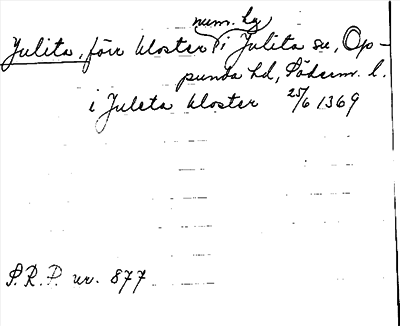 num. hg
Julita, förr kloster i Julita sn, Op-
punda hd, Söderm. l.
i Juleta kloster 25/6 1369
S.R.P. nr. 877